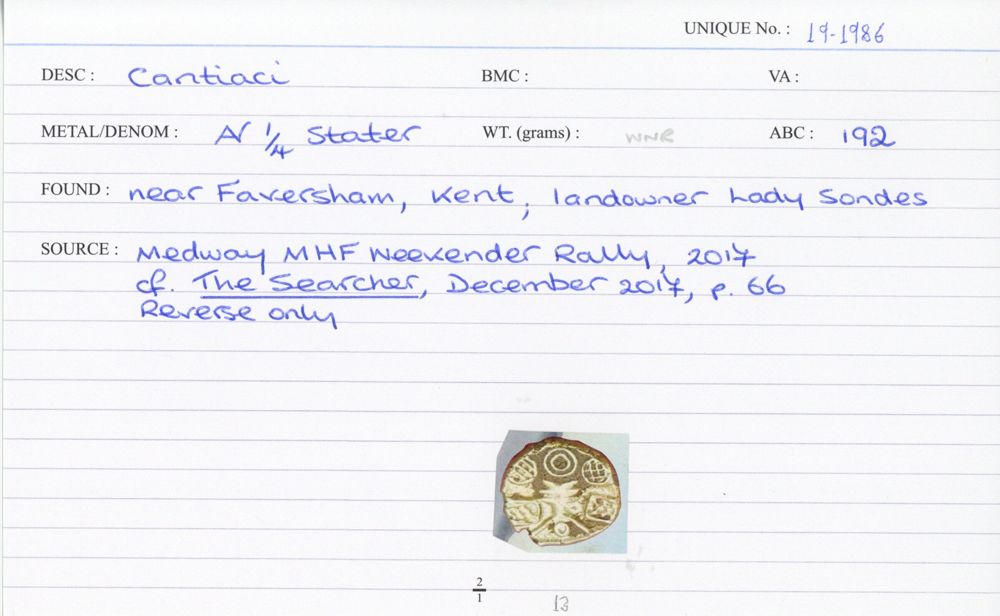 UNIQUE No. : 19-1986
DESC : Cantiaci BMC : VA :
METAL/DENOM : AV 1/4 Stater WT. (grams) : WNR ABC : 192
FOUND : near Faversham, Kent, landowner Lady Sondes
SOURCE : Medway MHF Weekender Rally, 2017
cf. The Searcher, December 2017, p. 66
Reverse only
2
1
13